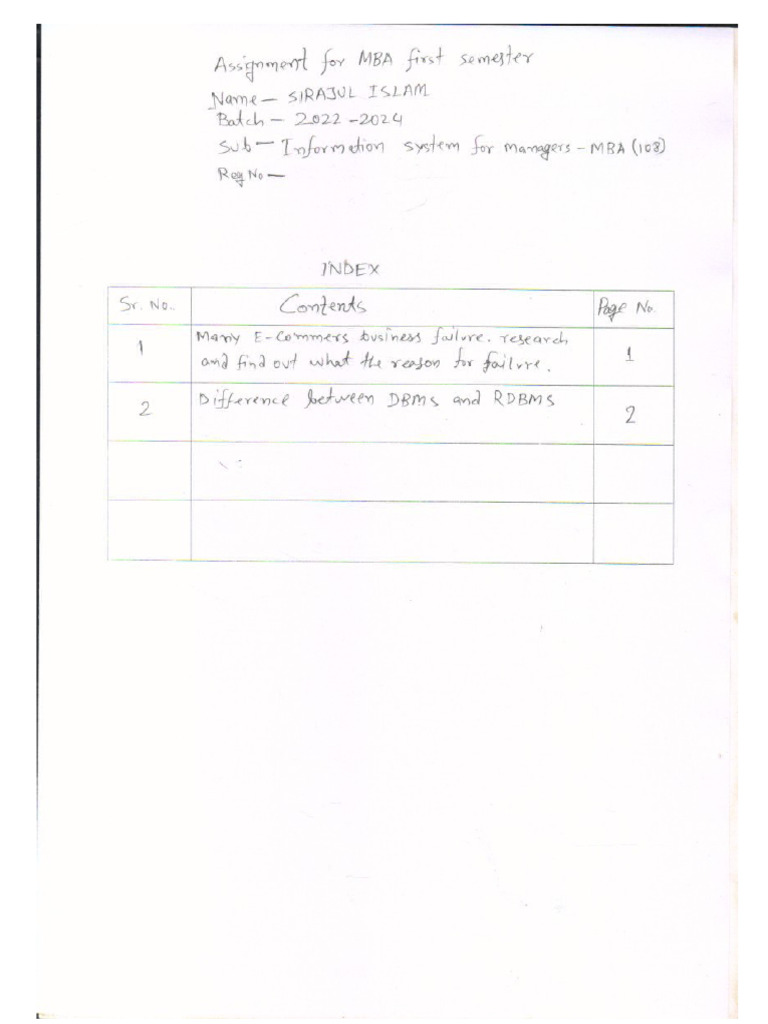 Assignment for MBA first semester
Name — SIRAJUL ISLAM
Batch — 2022 - 2024
Sub — Information system for managers - MBA (108)
Reg No —
INDEX
Sr. No. Contents Page No.
1 Many E-Commers business failure. research
and find out what the reason for failure. 1
2 Difference between DBMS and RDBMS 2